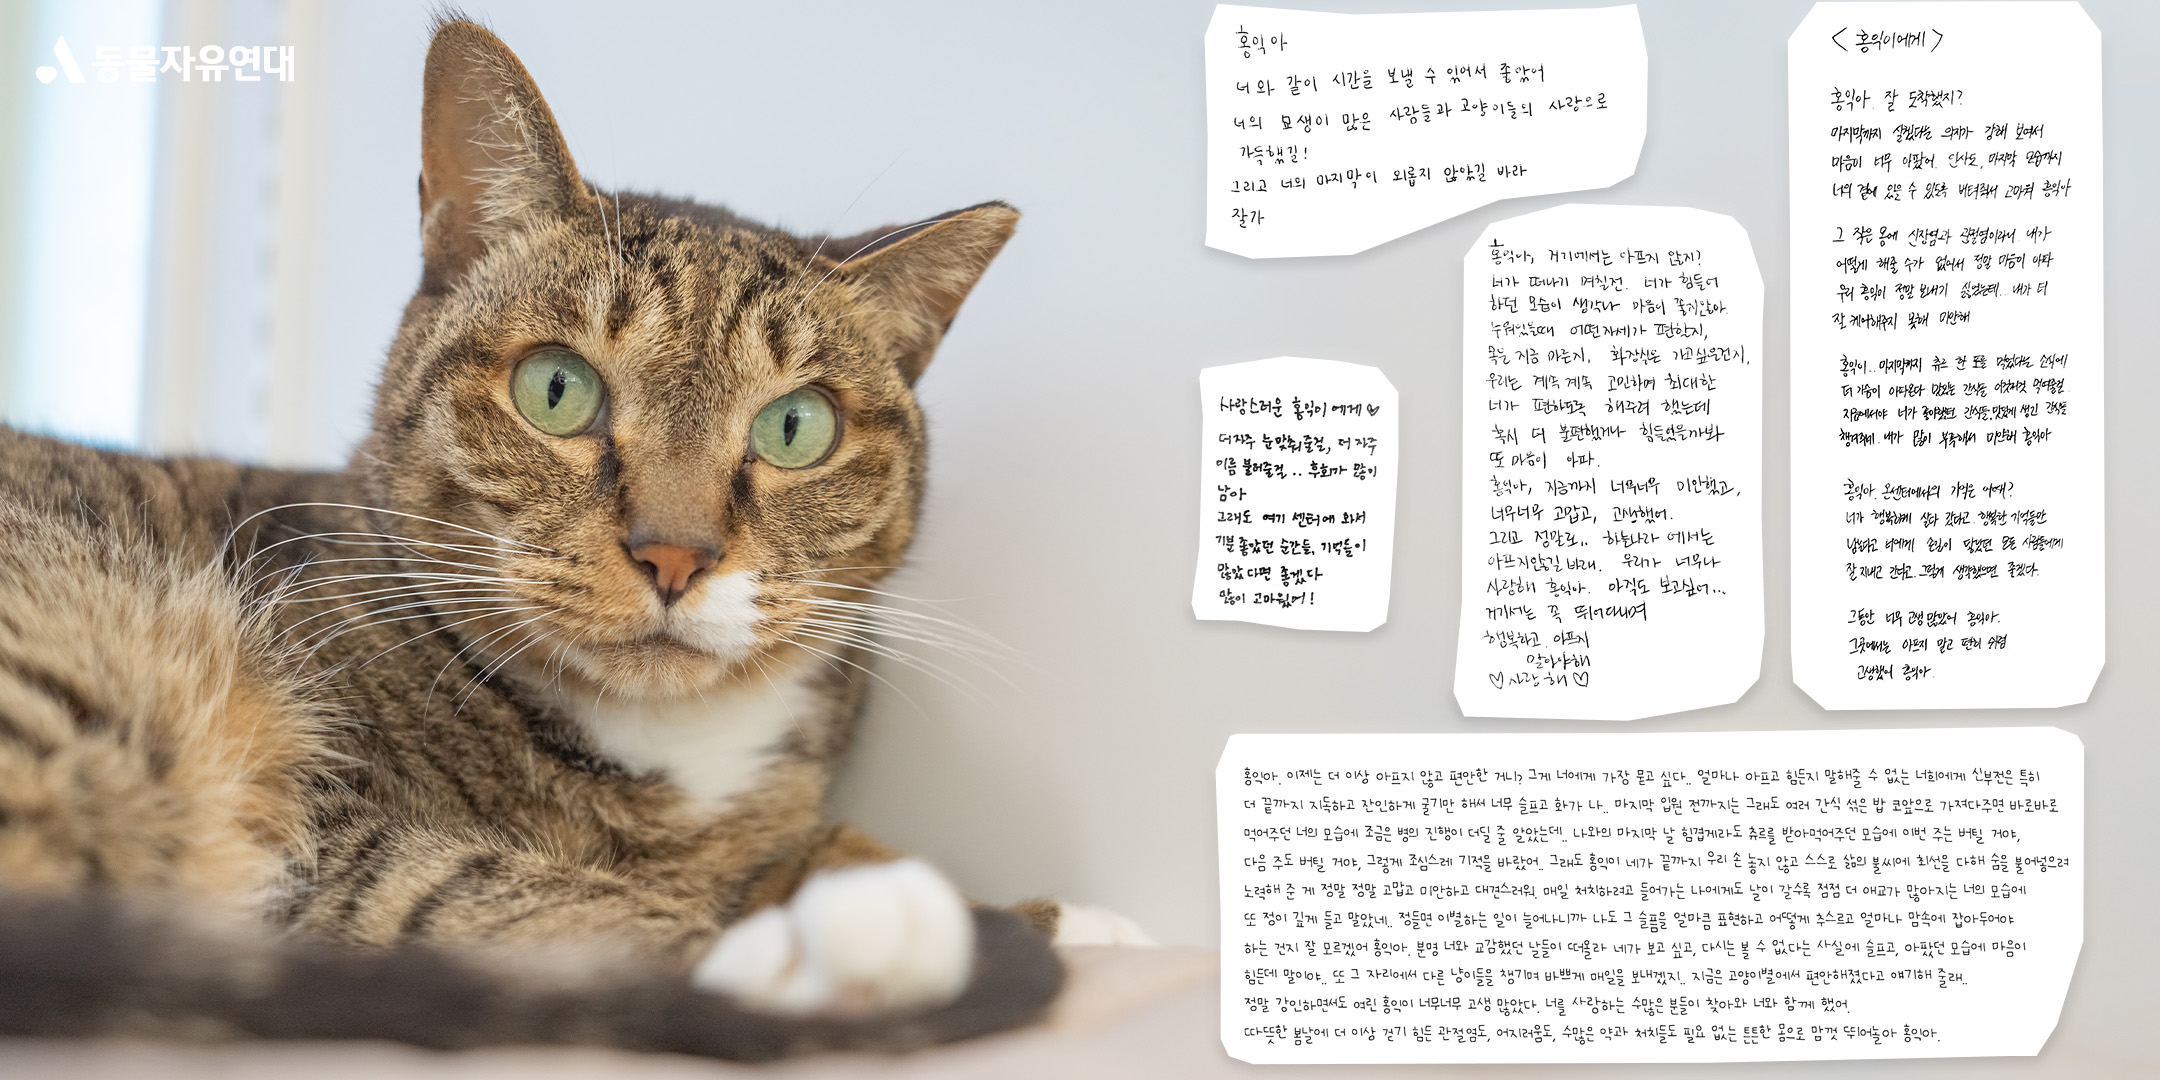 동물자유연대
홍익아
너와 같이 시간을 보낼 수 있어서 좋았어
너의 묘생이 많은 사람들과 고양이들의 사랑으로
가득했길!
그리고 너의 마지막이 외롭지 않았길 바라
잘가
<홍익이에게>
홍익아. 잘 도착했지?
마지막까지 살겠다는 의지가 강해 보여서
마음이 너무 아팠어. 마지막 모습까지
너의 곁에 있을 수 있도록 버텨줘서 고마워 홍익아
그 작은 몸에 신장염과 관절염이라니. 내가
어떻게 해줄 수가 없어서 정말 마음이 아파
우리 홍익이 정말 보내기 싫었는데... 내가 더
잘 케어해주지 못해 미안해
홍익이.. 마지막까지 츄르 한 포를 먹었다는 소식에
더 가슴이 아려온다. 맛있는 간식들 이것저것 먹여볼걸.
지금에서야 너가 좋아했던 간식들, 맛있게 생긴 간식들
챙겨줘서. 내가 많이 부족해서 미안해 홍익아
홍익아. 온센터에서의 기억은 어때?
너가 행복하게 살다 갔다고. 행복한 기억들만
남았다고 너에게 손길이 닿았던 모든 사람들에게
잘 지내고 간다고. 그렇게 생각했으면 좋겠다.
그동안 너무 고생 많았어 홍익아.
그곳에서는 아프지 말고 편히 쉬렴
고생했어 홍익아.
홍익아, 거기에서는 아프지 않지?
너가 떠나기 며칠전. 너가 힘들어
하던 모습이 생각나 마음이 좋지않아.
누워있을때 어떤자세가 편한지,
목은 지금 마른지, 화장실은 가고싶은건지,
우리는 계속 계속 고민하며 최대한
너가 편하도록 해주려 했는데
혹시 더 불편했거나 힘들었을까봐
또 마음이 아파.
홍익아, 지금까지 너무너무 미안했고,
너무너무 고맙고, 고생했어.
그리고 정말로.. 하늘나라에서는
아프지않길 바래. 우리가 너무나
사랑해 홍익아. 아직도 보고싶어...
거기서는 꼭 뛰어다니며
행복하고. 아프지
말아야해
♡사랑해♡
사랑스러운 홍익이에게♡
더자주 눈맞춰줄걸, 더 자주
이름 불러줄걸.. 후회가 많이
남아
그래도 여기 센터에 와서
기분 좋았던 순간들, 기억들이
많았다면 좋겠다
많이 고마웠어!
홍익아. 이제는 더 이상 아프지 않고 편안한 거니? 그게 너에게 가장 묻고 싶다.. 얼마나 아프고 힘든지 말해줄 수 없는 너희에게 신부전은 특히
더 끝까지 지독하고 잔인하게 굴기만 해서 너무 슬프고 화가 나.. 마지막 입원 전까지는 그래도 여러 간식 섞은 밥 코앞으로 가져다주면 바로바로
먹어주던 너의 모습에 조금은 병의 진행이 더딜 줄 알았는데.. 나와의 마지막 날 힘겹게라도 츄르를 받아먹어주던 모습에 이번 주는 버틸 거야,
다음 주도 버틸 거야, 그렇게 조심스레 기적을 바랐어.. 그래도 홍익이 네가 끝까지 우리 손 놓지 않고 스스로 삶의 불씨에 최선을 다해 숨을 불어넣으려
노력해 준 게 정말 정말 고맙고 미안하고 대견스러워. 매일 처치하려고 들어가는 나에게도 날이 갈수록 점점 더 애교가 많아지는 너의 모습에
또 정이 깊게 들고 말았네.. 정들면 이별하는 일이 늘어나니까 나도 그 슬픔을 얼마큼 표현하고 어떻게 추스르고 얼마나 맘속에 잡아두어야
하는 건지 잘 모르겠어 홍익아. 분명 너와 교감했던 날들이 떠올라 네가 보고 싶고, 다시는 볼 수 없다는 사실에 슬프고, 아팠던 모습에 마음이
힘든데 말이야.. 또 그 자리에서 다른 냥이들을 챙기며 바쁘게 매일을 보내겠지.. 지금은 고양이별에서 편안해졌다고 얘기해 줄래..
정말 강인하면서도 여린 홍익이 너무너무 고생 많았다. 너를 사랑하는 수많은 분들이 찾아와 너와 함께 했어.
따뜻한 봄날에 더 이상 걷기 힘든 관절염도, 어지러움도, 수많은 약과 처치들도 필요 없는 튼튼한 몸으로 맘껏 뛰어놀아 홍익아.